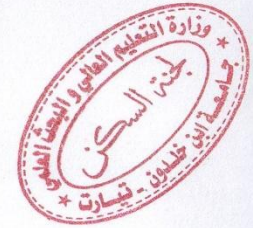 وزارة التعليم العالي و البحث العلمي
لجنة السكن
★ جامعة ابن خلدون - تيارت ★